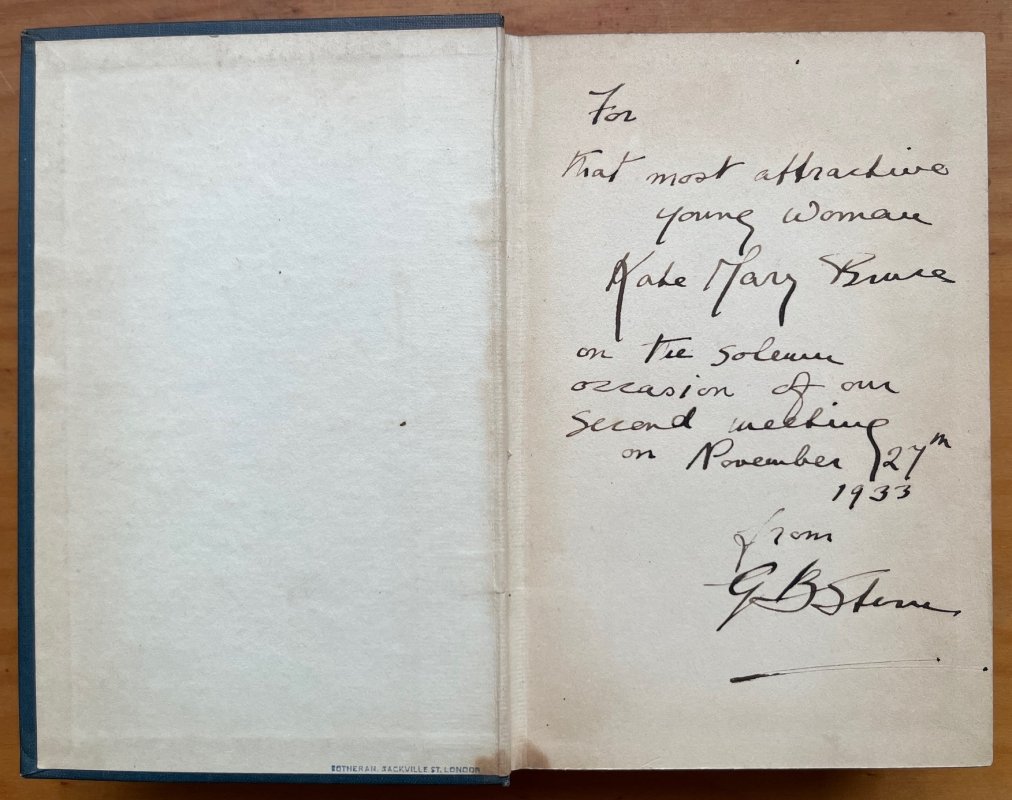 SOTHERAN, SACKVILLE ST, LONDON
For
that most attractive
young woman
Kate Mary Bruce
on the solemn
occasion of our
second meeting
on November 27th
1933
from
G B Stern